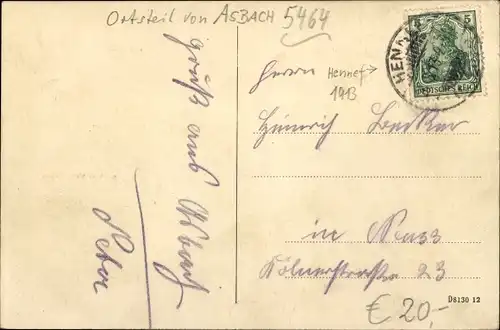 Ortsteil von ASBACH 5464
HENN
5
DEUTSCHES REICH
Gruß aus Asbach
Peter
Herrn
Hennef →
1913
Heinrich Becker
in Neuss
Kölnerstraße 23
D8130 12
€ 20-